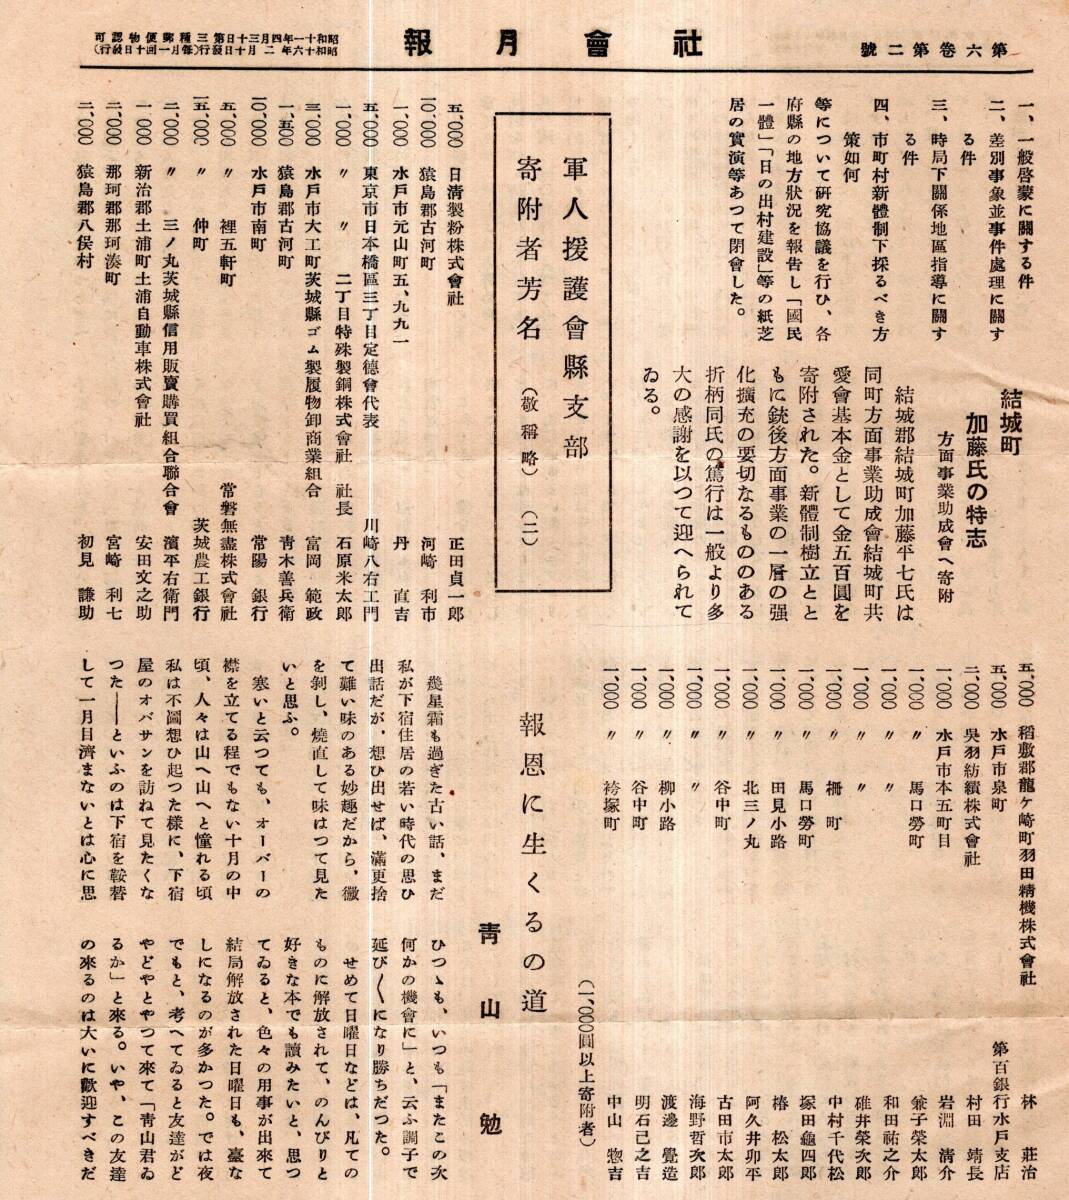 第六卷第二號
社會月報
昭和十一年四月三十日第三種郵便物認可
昭和十六年二月十日發行(每月一回十日發行)
一、一般啓蒙に關する件
二、差別事象並事件處理に關す
る件
三、時局下關係地區指導に關す
る件
四、市町村新體制下採るべき方
策如何
等について硏究協議を行ひ、各
府縣の地方狀況を報告し「國民
一體」「日の出村建設」等の紙芝
居の實演等あつて閉會した。
結城町
加藤氏の特志
方面事業助成會へ寄附
結城郡結城町加藤平七氏は
同町方面事業助成會結城町共
愛會基本金として金五百圓を
寄附された。新體制樹立とと
もに銃後方面事業の一層の强
化擴充の要切なるもののある
折柄同氏の篤行は一般より多
大の感謝を以つて迎へられて
ゐる。
軍人援護會縣支部
寄附者芳名(敬稱略)(二)
五、〇〇〇 日淸製粉株式會社 正田貞一郎
一〇、〇〇〇 猿島郡古河町 河崎利市
一、〇〇〇 水戶市元山町五、九九一 丹直吉
五、〇〇〇 東京市日本橋區三丁目定德會代表 川崎八右エ門
一、〇〇〇 〃 〃 二丁目特殊製鋼株式會社 社長 石原米太郎
三、〇〇〇 水戶市大工町茨城縣ゴム製履物卸商業組合 富岡範政
一、五〇〇 猿島郡古河町 靑木善兵衞
一〇、〇〇〇 水戶市南町 常陽銀行
五、〇〇〇 〃 裡五軒町 常磐無盡株式會社
一五、〇〇〇 〃 仲町 茨城農工銀行
二、〇〇〇 〃 三ノ丸茨城縣信用販賣購買組合聯合會 濱平右衞門
一、〇〇〇 新治郡土浦町土浦自動車株式會社 安田文之助
二、〇〇〇 那珂郡那珂湊町 宮崎利七
二、〇〇〇 猿島郡八俣村 初見謙助
五、〇〇〇 稻敷郡龍ケ崎町羽田精機株式會社 林莊治
五、〇〇〇 水戶市泉町 第百銀行水戶支店
二、〇〇〇 吳羽紡績株式會社 村田靖長
一、〇〇〇 水戶市本五町目 岩淵淸介
一、〇〇〇 〃 馬口勞町 兼子榮太郎
一、〇〇〇 〃 〃 和田祐之介
一、〇〇〇 〃 〃 碓井榮次郎
一、〇〇〇 〃 柵町 中村千代松
一、〇〇〇 〃 馬口勞町 塚田龜四郎
一、〇〇〇 〃 田見小路 椿松太郎
一、〇〇〇 〃 北三ノ丸 阿久井卯平
一、〇〇〇 〃 谷中町 古田市太郎
一、〇〇〇 〃 〃 海野哲次郎
一、〇〇〇 〃 柳小路 渡邊覺造
一、〇〇〇 〃 谷中町 明石己之吉
一、〇〇〇 〃 袴塚町 中山惣吉
(一、〇〇〇圓以上寄附者)
報恩に生くるの道
靑山勉
幾星霜も過ぎた古い話、まだ
私が下宿住居の若い時代の思ひ
出話だが、想ひ出せば、滿更捨
て難い味のある妙趣だから、黴
を剝し、燒直して味はつて見た
いと思ふ。
寒いと云つても、オーバーの
襟を立てる程でもない十月の中
頃、人々は山へ山へと憧れる頃
私は不圖想ひ起つた樣に、下宿
屋のオバサンを訪ねて見たくな
つた――といふのは下宿を鞍替
して一月目濟まないとは心に思
ひつゝも、いつも「またこの次
何かの機會に」と、云ふ調子で
延び〱になり勝ちだつた。
せめて日曜日などは、凡ての
ものに解放されて、のんびりと
好きな本でも讀みたいと、思つ
てゐると、色々の用事が出來て
結局解放された日曜日も、臺な
しになるのが多かつた。では夜
でもと、考へてゐると友達がど
やどやとやつて來て「靑山君ゐ
るか」と來る。いや、この友達
の來るのは大いに歡迎すべきだ